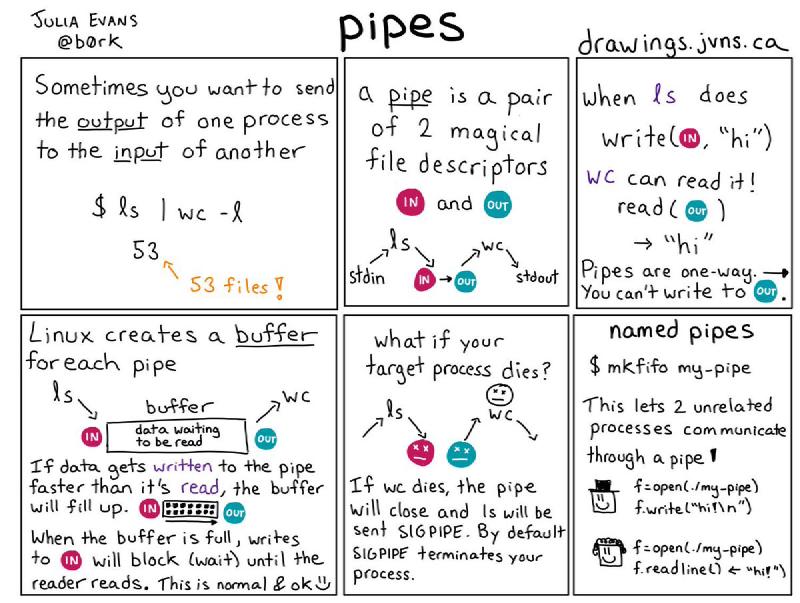 JULIA EVANS
@b0rk
pipes
drawings.jvns.ca
Sometimes you want to send
the output of one process
to the input of another
$ ls | wc -l
53
53 files!
a pipe is a pair
of 2 magical
file descriptors
IN and OUT
ls
wc
stdin
IN
OUT
stdout
when ls does
write(IN, "hi")
wc can read it!
read(OUT)
→ "hi"
Pipes are one-way. →
You can't write to OUT.
Linux creates a buffer
for each pipe
ls
wc
buffer
IN
data waiting
to be read
OUT
If data gets written to the pipe
faster than it's read, the buffer
will fill up. IN OUT
When the buffer is full, writes
to IN will block (wait) until the
reader reads. This is normal & ok☺
what if your
target process dies?
ls
wc
If wc dies, the pipe
will close and ls will be
sent SIGPIPE. By default
SIGPIPE terminates your
process.
named pipes
$ mkfifo my-pipe
This lets 2 unrelated
processes communicate
through a pipe!
f=open(./my-pipe)
f.write("hi!\n")
f=open(./my-pipe)
f.readline() ← "hi!")